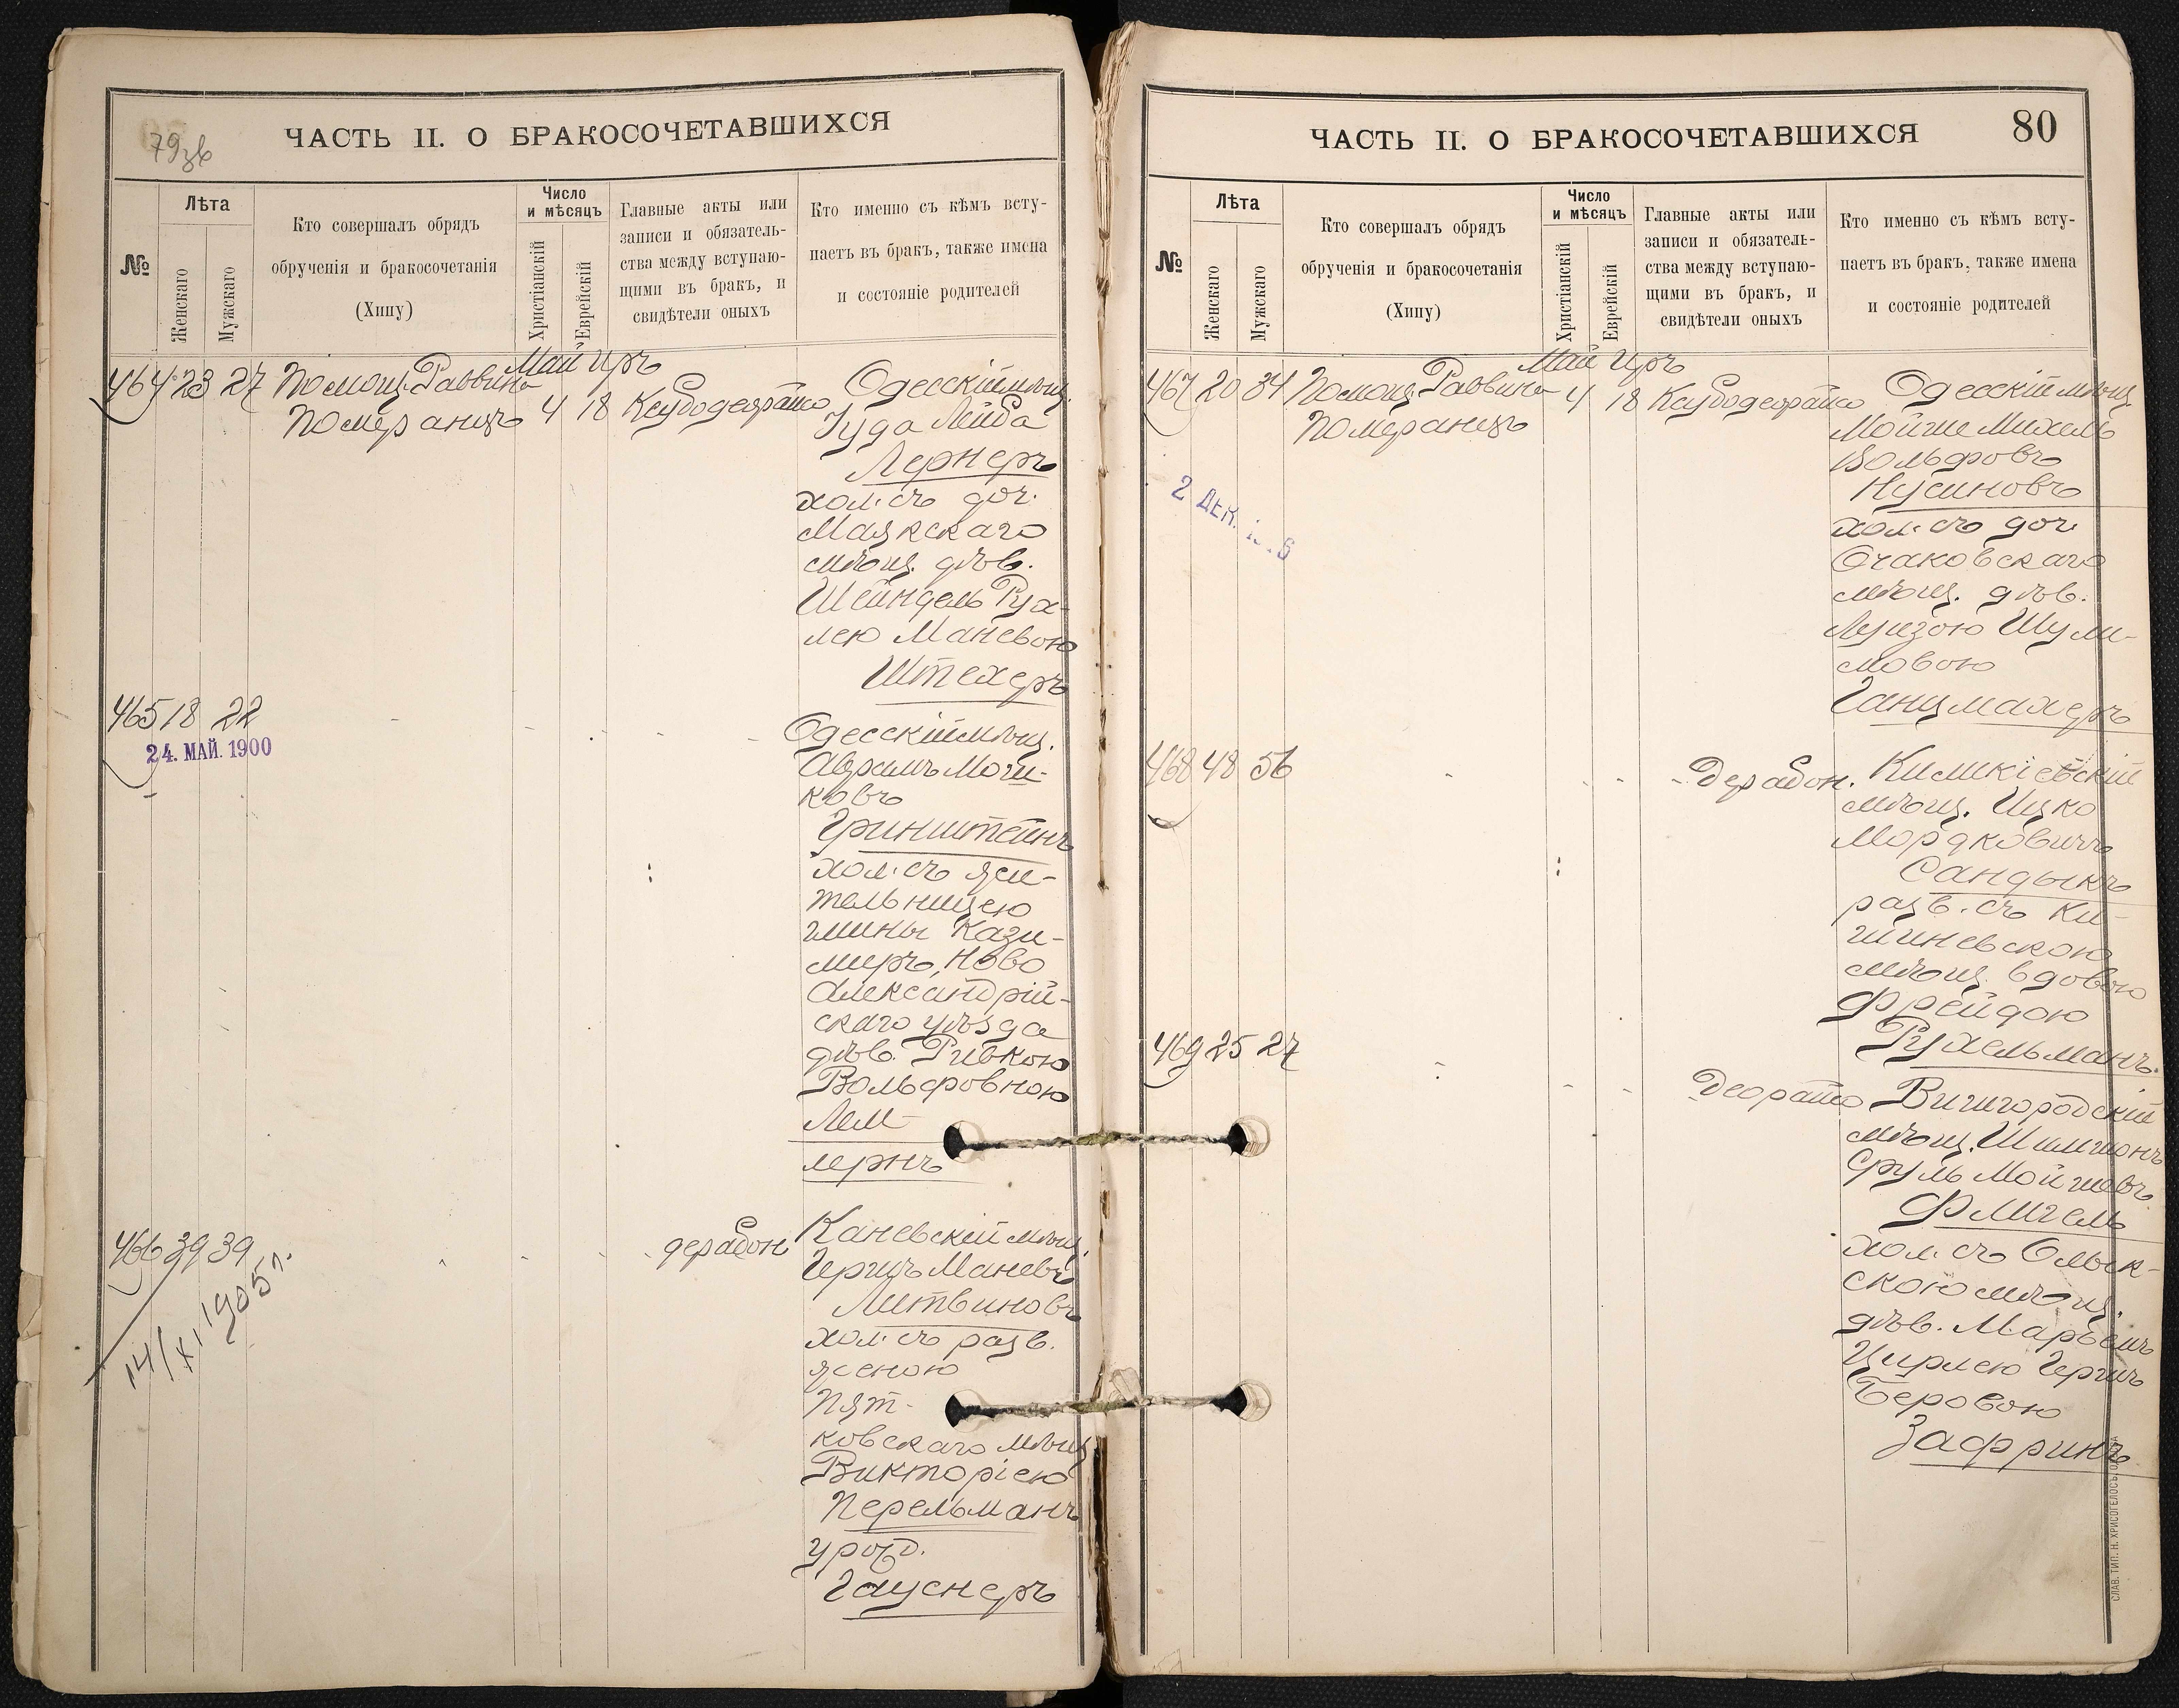 79зв
ЧАСТЬ II. О БРАКОСОЧЕТАВШИХСЯ
№
Лѣта
Женскаго
Мужскаго
Кто совершалъ обрядъ
обрученія и бракосочетанія
(Хипу)
Число
и мѣсяцъ
Христіанскій
Еврейскій
Главные акты или
записи и обязатель-
ства между вступаю-
щими въ бракъ, и
свидѣтели оныхъ
Кто именно съ кѣмъ всту-
паетъ въ бракъ, также имена
и состояніе родителей
Май Иръ
464 23 27 Помощ. Раввина
Померанцъ 4 18
Одесскій мѣщ.
Іуда Лейба
Лернеръ
хол. съ доч.
Маякскаго
мѣщ. дѣв.
Шейндель Рух-
лею Маневою
Штехеръ
465 18 22
24. МАЙ. 1900
Одесскій мѣщ.
Абрамъ Мош-
ковъ
Гринштейнъ
хол. съ жи-
тельницею
гмины Кази-
миръ, Ново
Александрій-
скаго уѣзда
дѣв. Ривкою
Вольфовною
Лем
лернъ
466 39 39 дерабон
14/XI 1905 г.
Каневскій мѣщ.
Герцъ Маневъ
Литвиновъ
хол. съ разв.
женою
Пят-
ковскаго мѣщ.
Викторіею
Перельманъ
урожд.
Гауснеръ
ЧАСТЬ II. О БРАКОСОЧЕТАВШИХСЯ
80
№
Лѣта
Женскаго
Мужскаго
Кто совершалъ обрядъ
обрученія и бракосочетанія
(Хипу)
Число
и мѣсяцъ
Христіанскій
Еврейскій
Главные акты или
записи и обязатель-
ства между вступаю-
щими въ бракъ, и
свидѣтели оныхъ
Кто именно съ кѣмъ всту-
паетъ въ бракъ, также имена
и состояніе родителей
Май Иръ
467 20 34 Помощ. Раввина
Померанцъ 4 18
2 ДЕК.
Одесскій мѣщ.
Мойше Михель
Вольфовъ
Нусиновъ
хол. съ доч.
Очаковскаго
мѣщ. дѣв.
Луизою Шули-
мовою
Ганцмахеръ
468 48 56 Дерабон.
мѣщ. Ицко
Мордковичъ
Сандыкъ
разв. съ Ки-
шиневскою
мѣщ. вдовою
Фрейдою
Рухельманъ.
469 25 27 Деорайто
Вишгородскій
мѣщ. Шимшонъ
Сруль Мойшевъ
Флигель
хол. съ Олык-
скою мѣщ.
дѣв. Марьемъ
Цирлею Герцъ
Беровою
Зафринъ
СЛАВ. ТИП. Н. ХРИСОГЕЛОСЪ